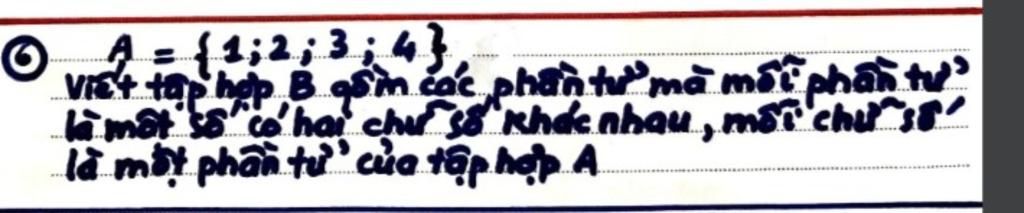 6 A = { 1 ; 2 ; 3 ; 4 }
Viết tập hợp B gồm các phần tử mà mỗi phần tử
là một số có hai chữ số khác nhau, mỗi chữ số
là một phần tử của tập hợp A